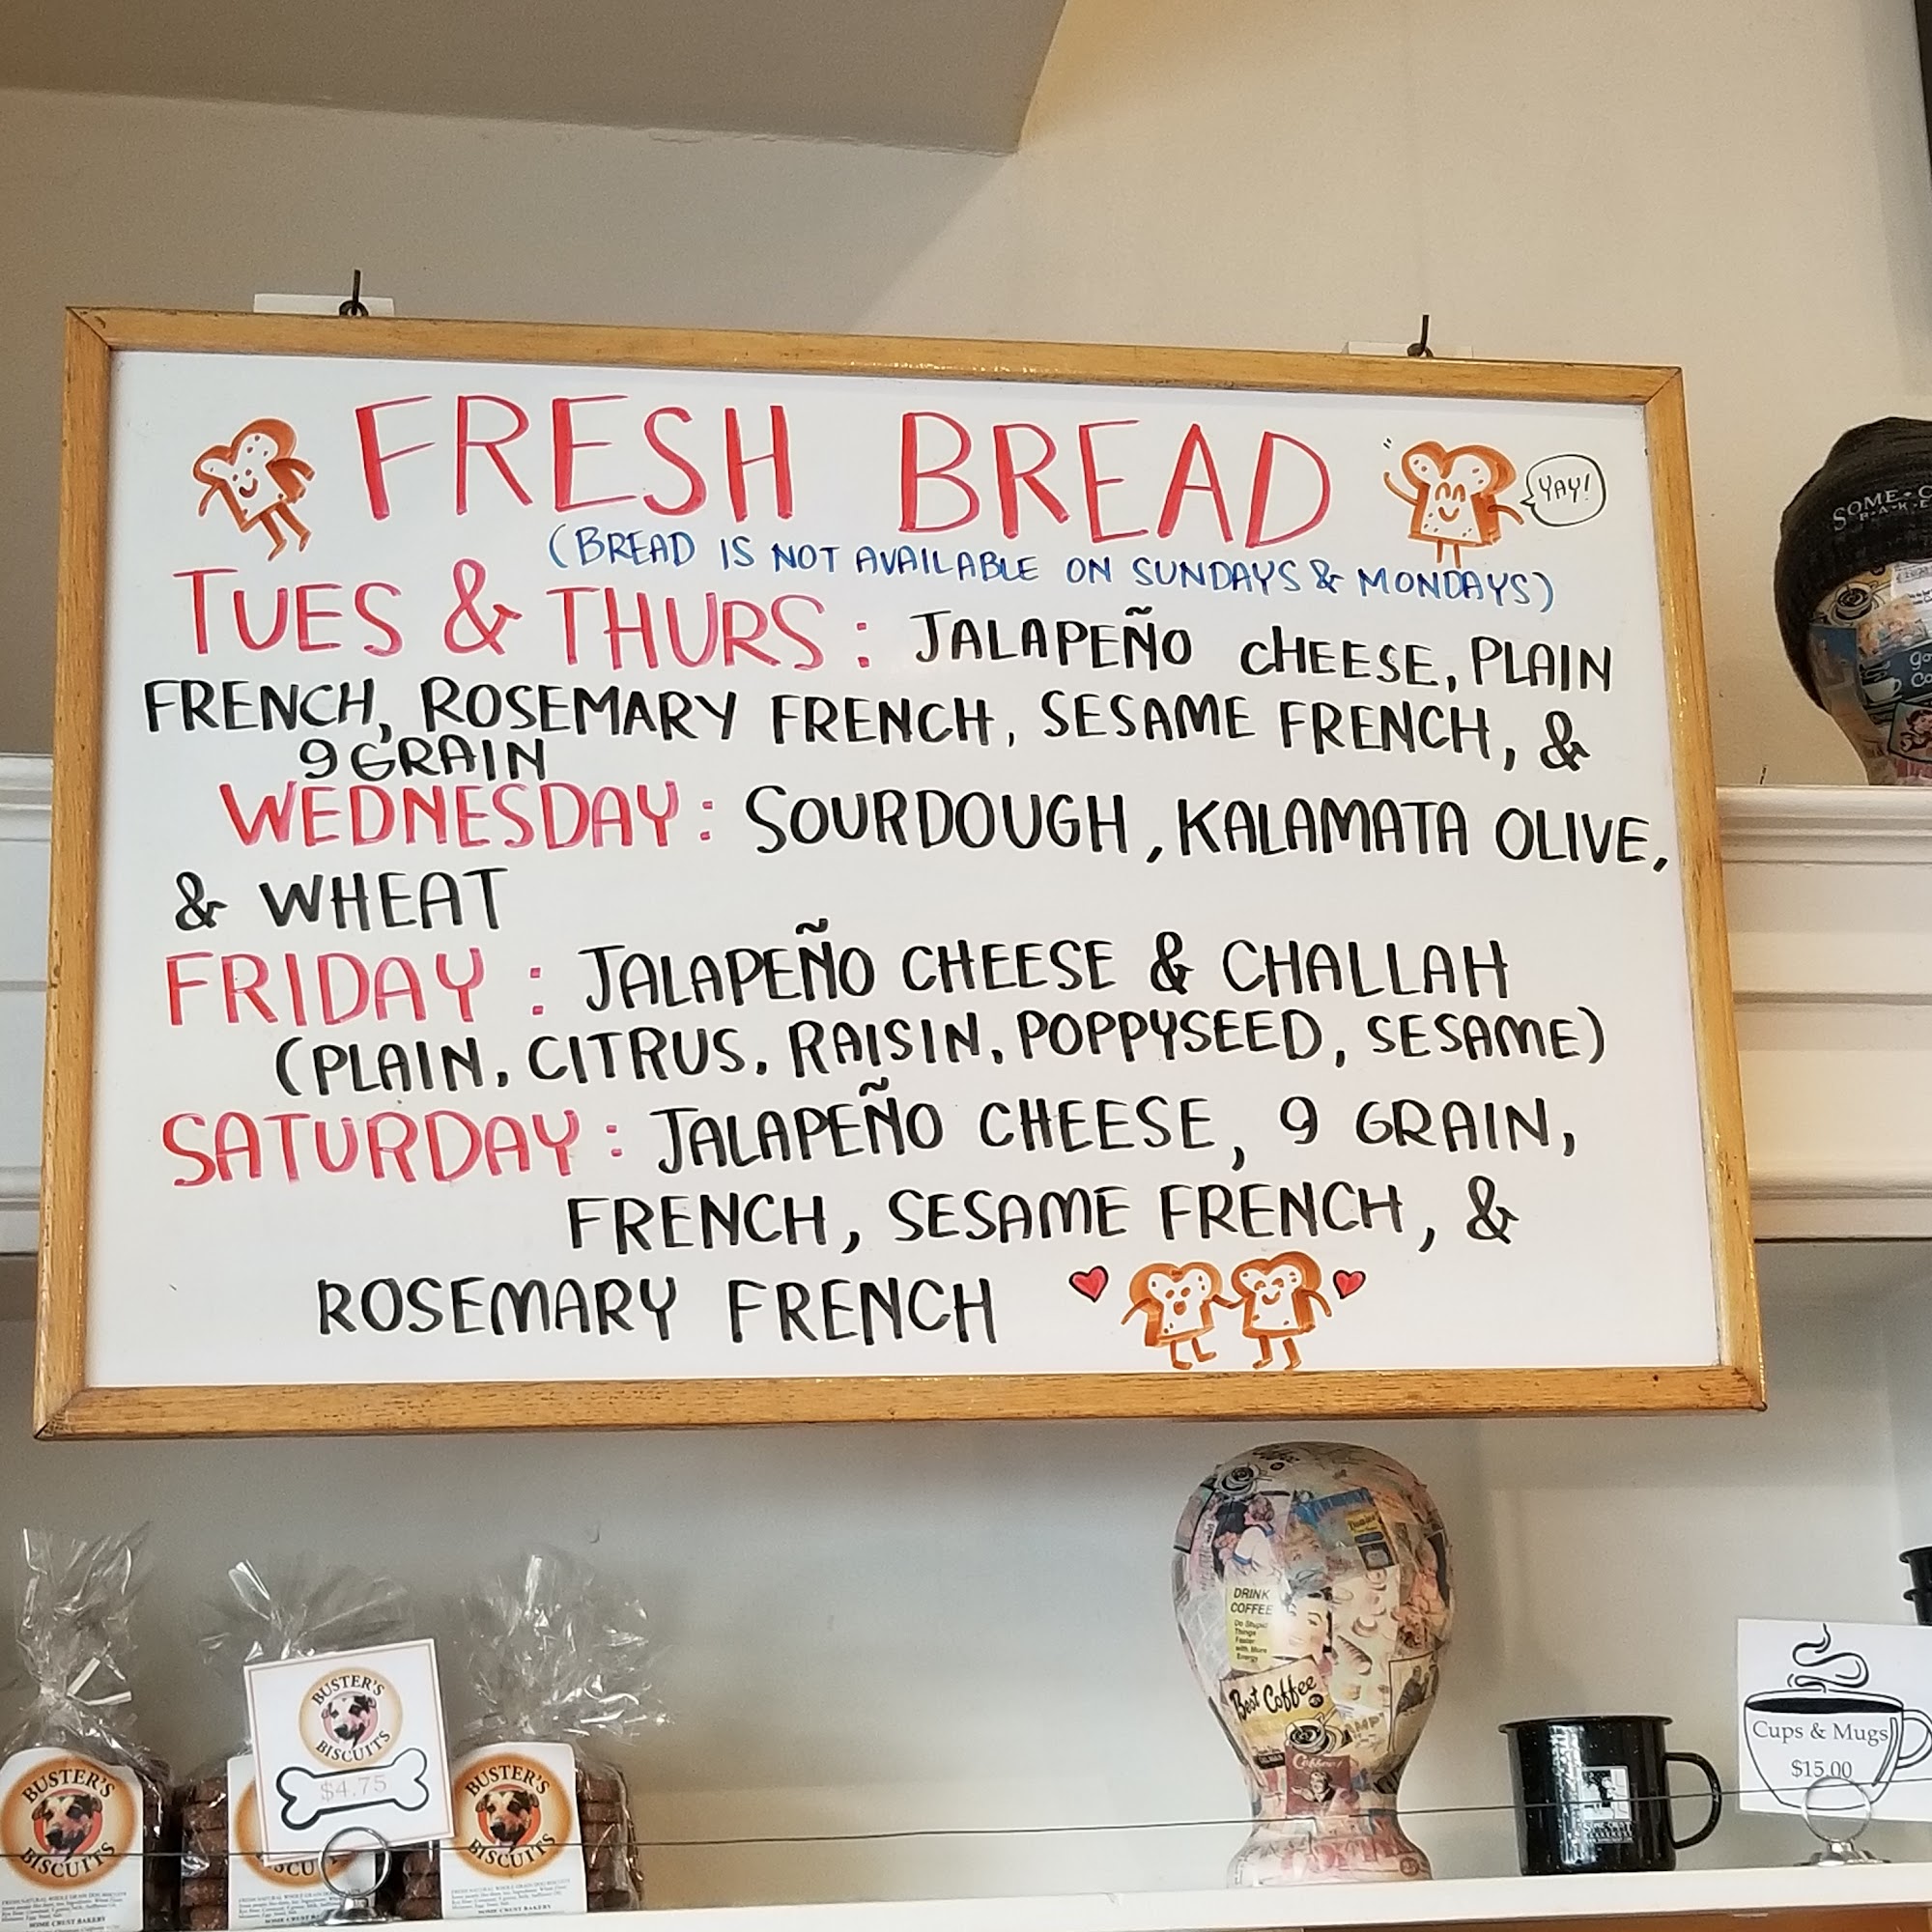 FRESH BREAD
YAY!
(BREAD IS NOT AVAILABLE ON SUNDAYS & MONDAYS)
TUES & THURS: JALAPEÑO CHEESE, PLAIN
FRENCH, ROSEMARY FRENCH, SESAME FRENCH, &
9 GRAIN
WEDNESDAY: SOURDOUGH, KALAMATA OLIVE,
& WHEAT
FRIDAY: JALAPEÑO CHEESE & CHALLAH
(PLAIN, CITRUS, RAISIN, POPPYSEED, SESAME)
SATURDAY: JALAPEÑO CHEESE, 9 GRAIN,
FRENCH, SESAME FRENCH, &
ROSEMARY FRENCH
SOME
DRINK
COFFEE
Do Stupid
Things
Faster
with More
Energy
Best Coffee
BUSTER'S
BISCUITS
$4.75
BUSTER'S
BISCUITS
BUSTER'S
BISCUITS
SOME CRUST BAKERY
Cups & Mugs
$15.00